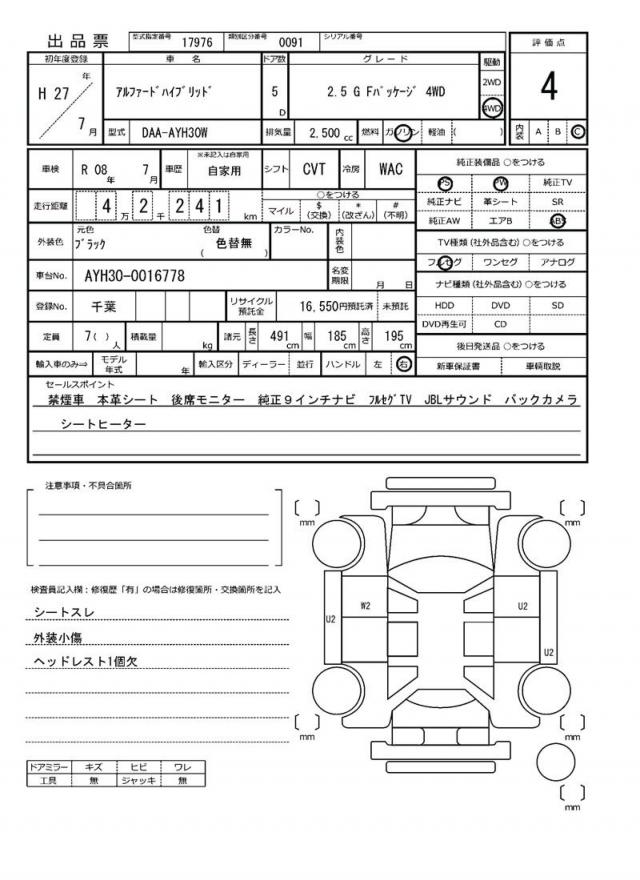 出品票 型式指定番号 17976 類別区分番号 0091 シリアル番号
初年度登録 車 名 ドア数 グレード 駆動 評価点
H 27 年 7 月 アルファードハイブリッド 5 D 2.5 G Fパッケージ 4WD 2WD 4WD 4
型式 DAA-AYH30W 排気量 2,500 cc 燃料 ガソリン 軽油 ( ) 内装 A B C
車検 R 08 年 7 月 車歴 ※未記入は自家用 自家用 シフト CVT 冷房 WAC 純正装備品 ○をつける
PS PW 純正TV
走行距離 4 万 2 千 2 4 1 km ○をつける マイル $ (交換) * (改ざん) # (不明) 純正ナビ 革シート SR
純正AW エアB ABS
外装色 元色 ブラック 色替 ( 色替無 ) カラーNo. 内装色 TV種類 (社外品含む) ○をつける
フルセグ ワンセグ アナログ
車台No. AYH30-0016778 名変期限 月 日 ナビ種類 (社外品含む) ○をつける
登録No. 千葉 リサイクル預託金 16,550円預託済 未預託 HDD DVD SD
DVD再生可 CD
定員 7( ) 人 積載量 kg 諸元 長さ 491 cm 幅 185 cm 高さ 195 cm 後日発送品 ○をつける
輸入車のみ⇒ モデル年式 年 輸入区分 ディーラー 並行 ハンドル 左 右 新車保証書 車輌取説
セールスポイント
禁煙車 本革シート 後席モニター 純正9インチナビ フルセグTV JBLサウンド バックカメラ
シートヒーター
注意事項・不具合箇所
mm mm
検査員記入欄：修復歴「有」の場合は修復箇所・交換箇所を記入
シートスレ
外装小傷
ヘッドレスト1個欠
W2 U2
U2 U2
mm mm
ドアミラー キズ ヒビ ワレ
工具 無 ジャッキ 無
mm